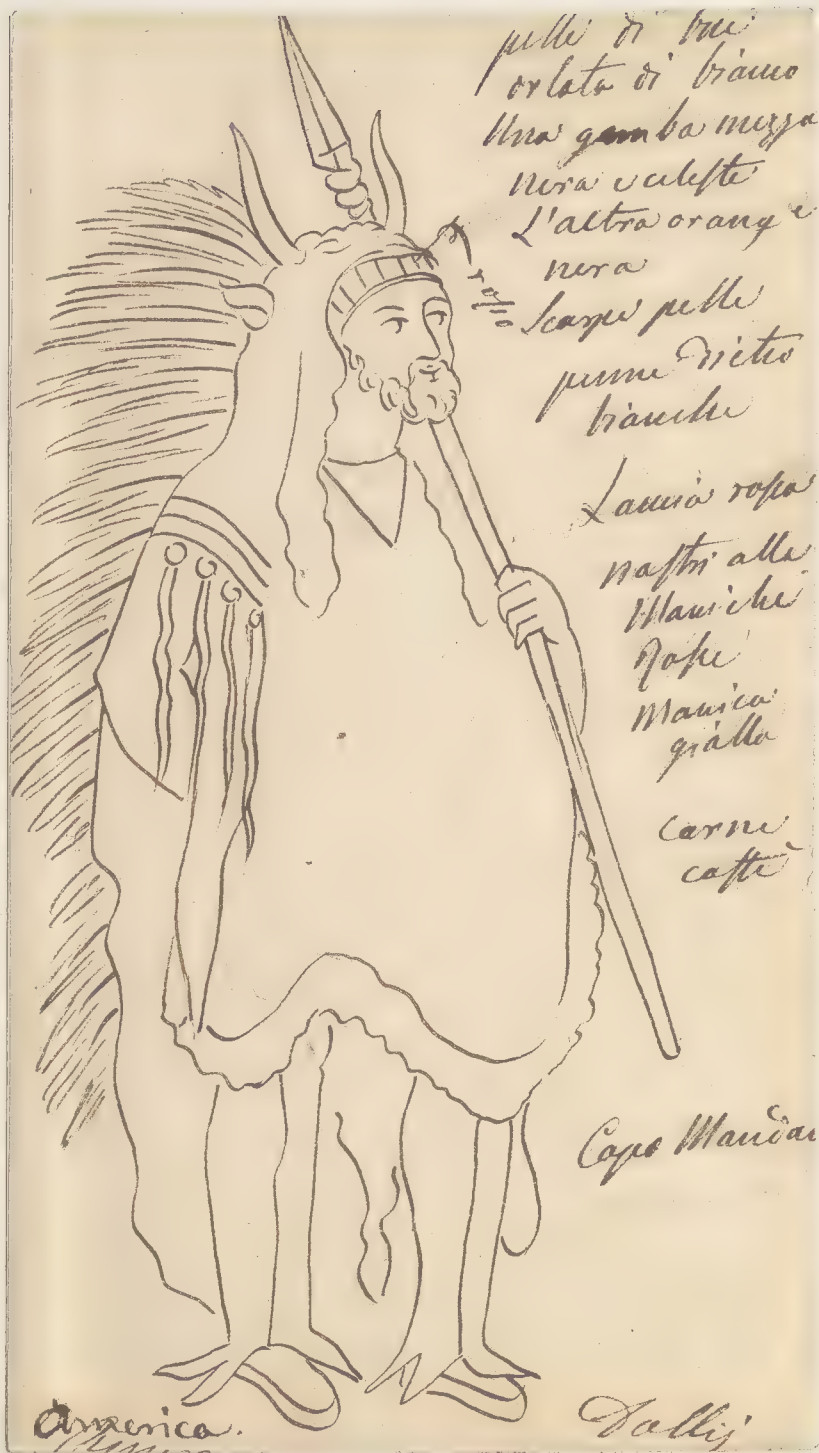 pelle di bue
orlata di bianco
Una gamba mezza
nera e celeste
L'altra orang e
nera
rosso
Scarpe pelle
penne dietro
bianche
Lancia rossa
nastri alla
Maniche
Rosse
Manica
gialla
carne
caffè
Capo Mandan
America.